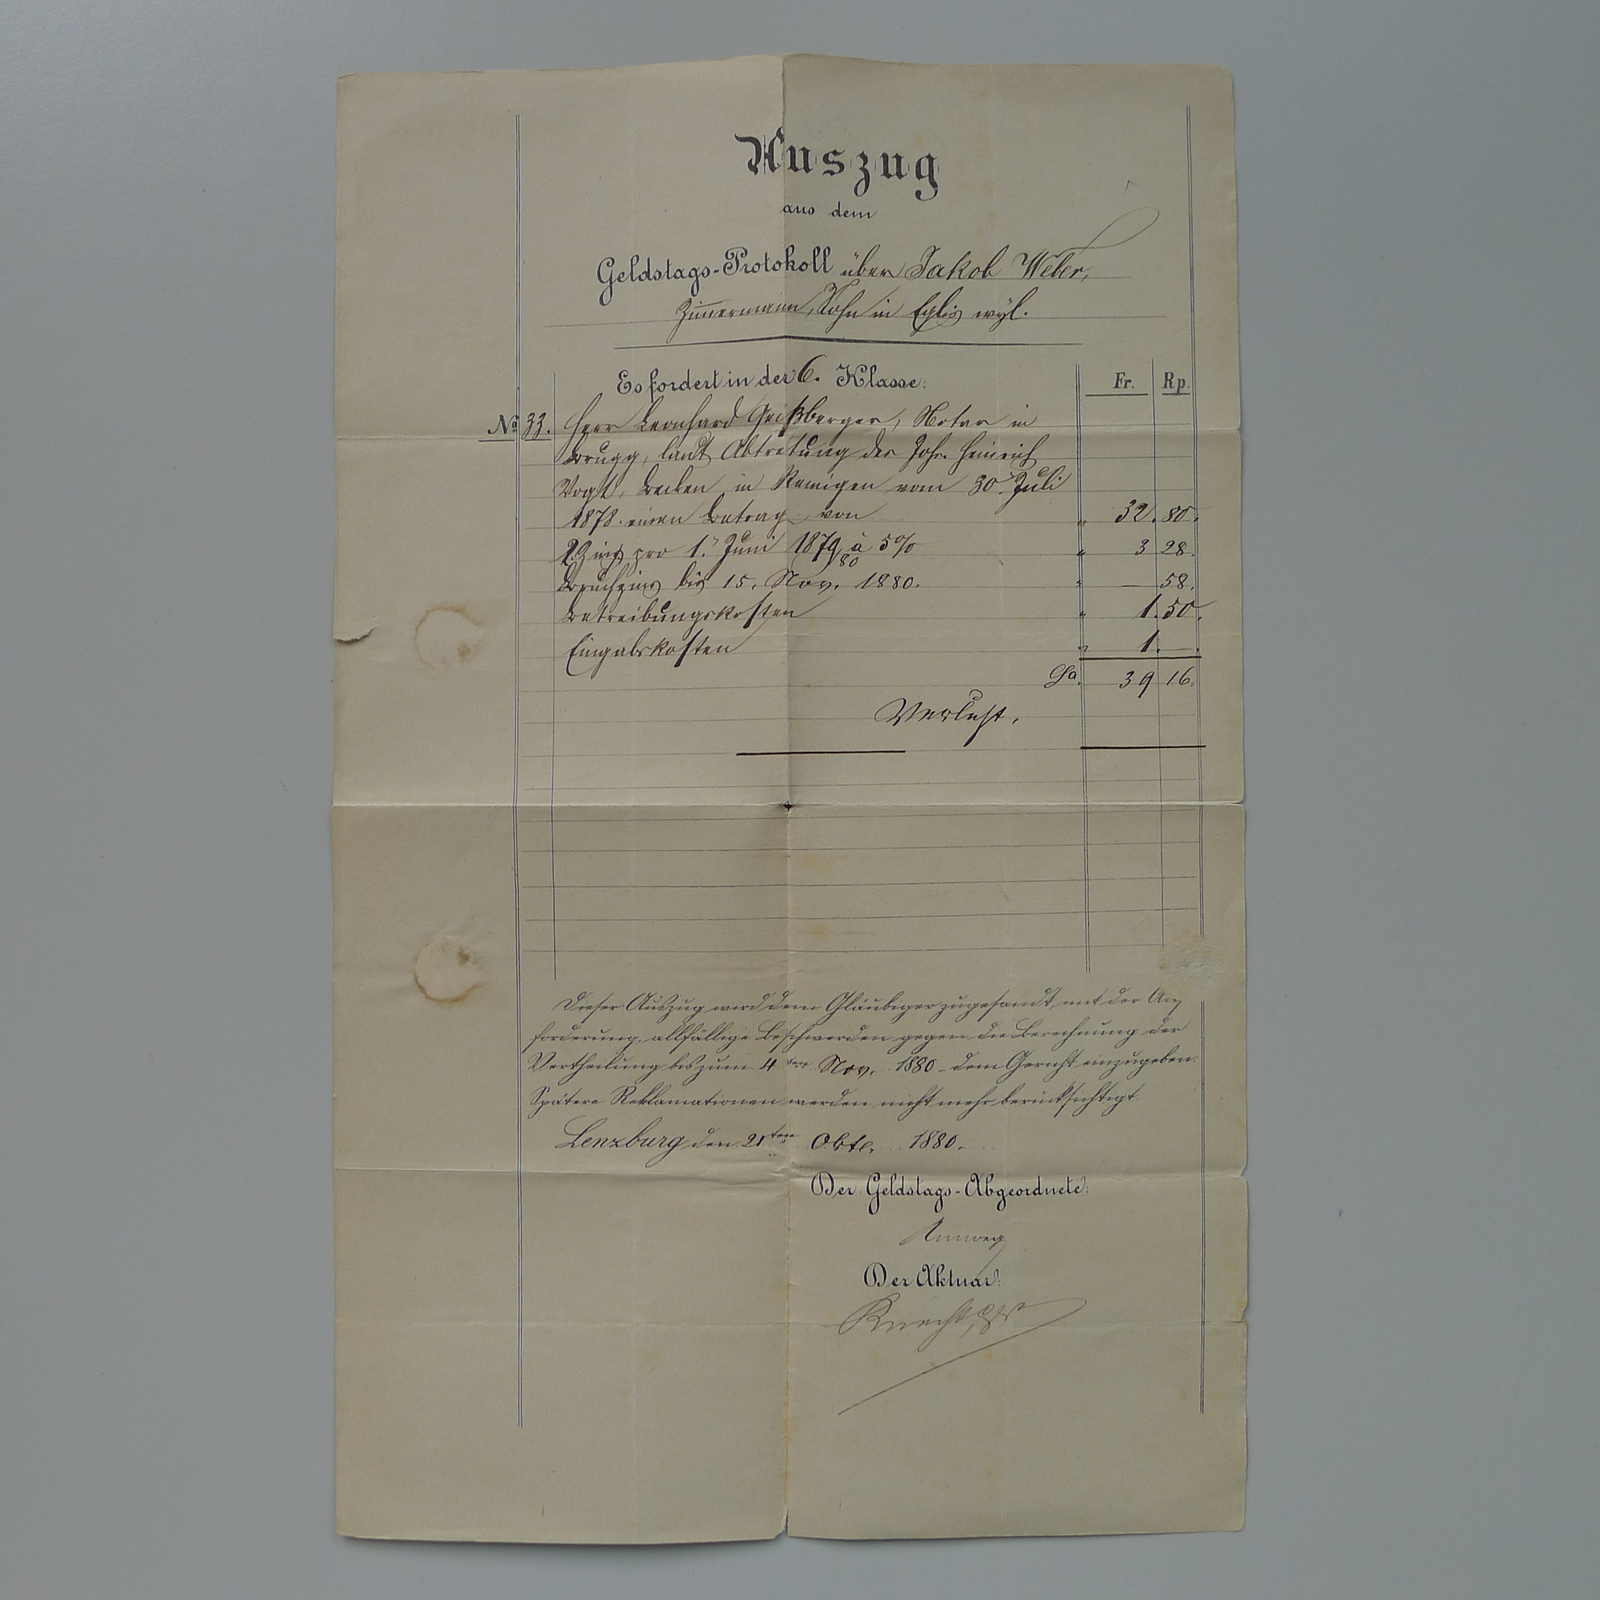 Auszug
aus dem
Geldstags-Protokoll über Jakob Weber,
Zimmermann, Sohn in Egliswyl.
Es fordert in der 6. Klasse: Fr. Rp.
No 33. Herr Leonhard Geißberger, Notar in
Brugg, laut Abtretung des Joh. Heinrich
Vogt, Becken in Remigen vom 30. Juli
1878 einen Betrag von " 32. 80.
2 Zins pro 1. Juni 1879/80 à 5% " 3 28.
Bruchzins bis 15. Nov. 1880. " — 58.
Betreibungskosten " 1. 50.
Eingabskosten " 1. —.
Sa. 39 16.
Verlust.
Dieser Auszug wird dem Gläubiger zugesandt mit der Auf-
forderung, allfällige Beschwerden gegen die Berechnung der
Vertheilung bis zum 4ten Nov. 1880 dem Gericht einzugeben.
Spätere Reklamationen werden nicht mehr berücksichtigt.
Lenzburg den 21ten Okte. 1880.
Der Geldstags-Abgeordnete:
Der Aktuar:
Knecht,